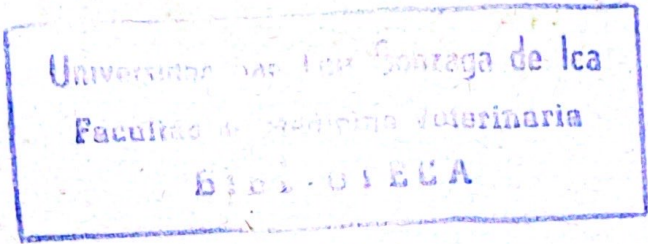 Universidad San Luis Gonzaga de Ica
Facultad de Medicina Veterinaria
BIBLIOTECA